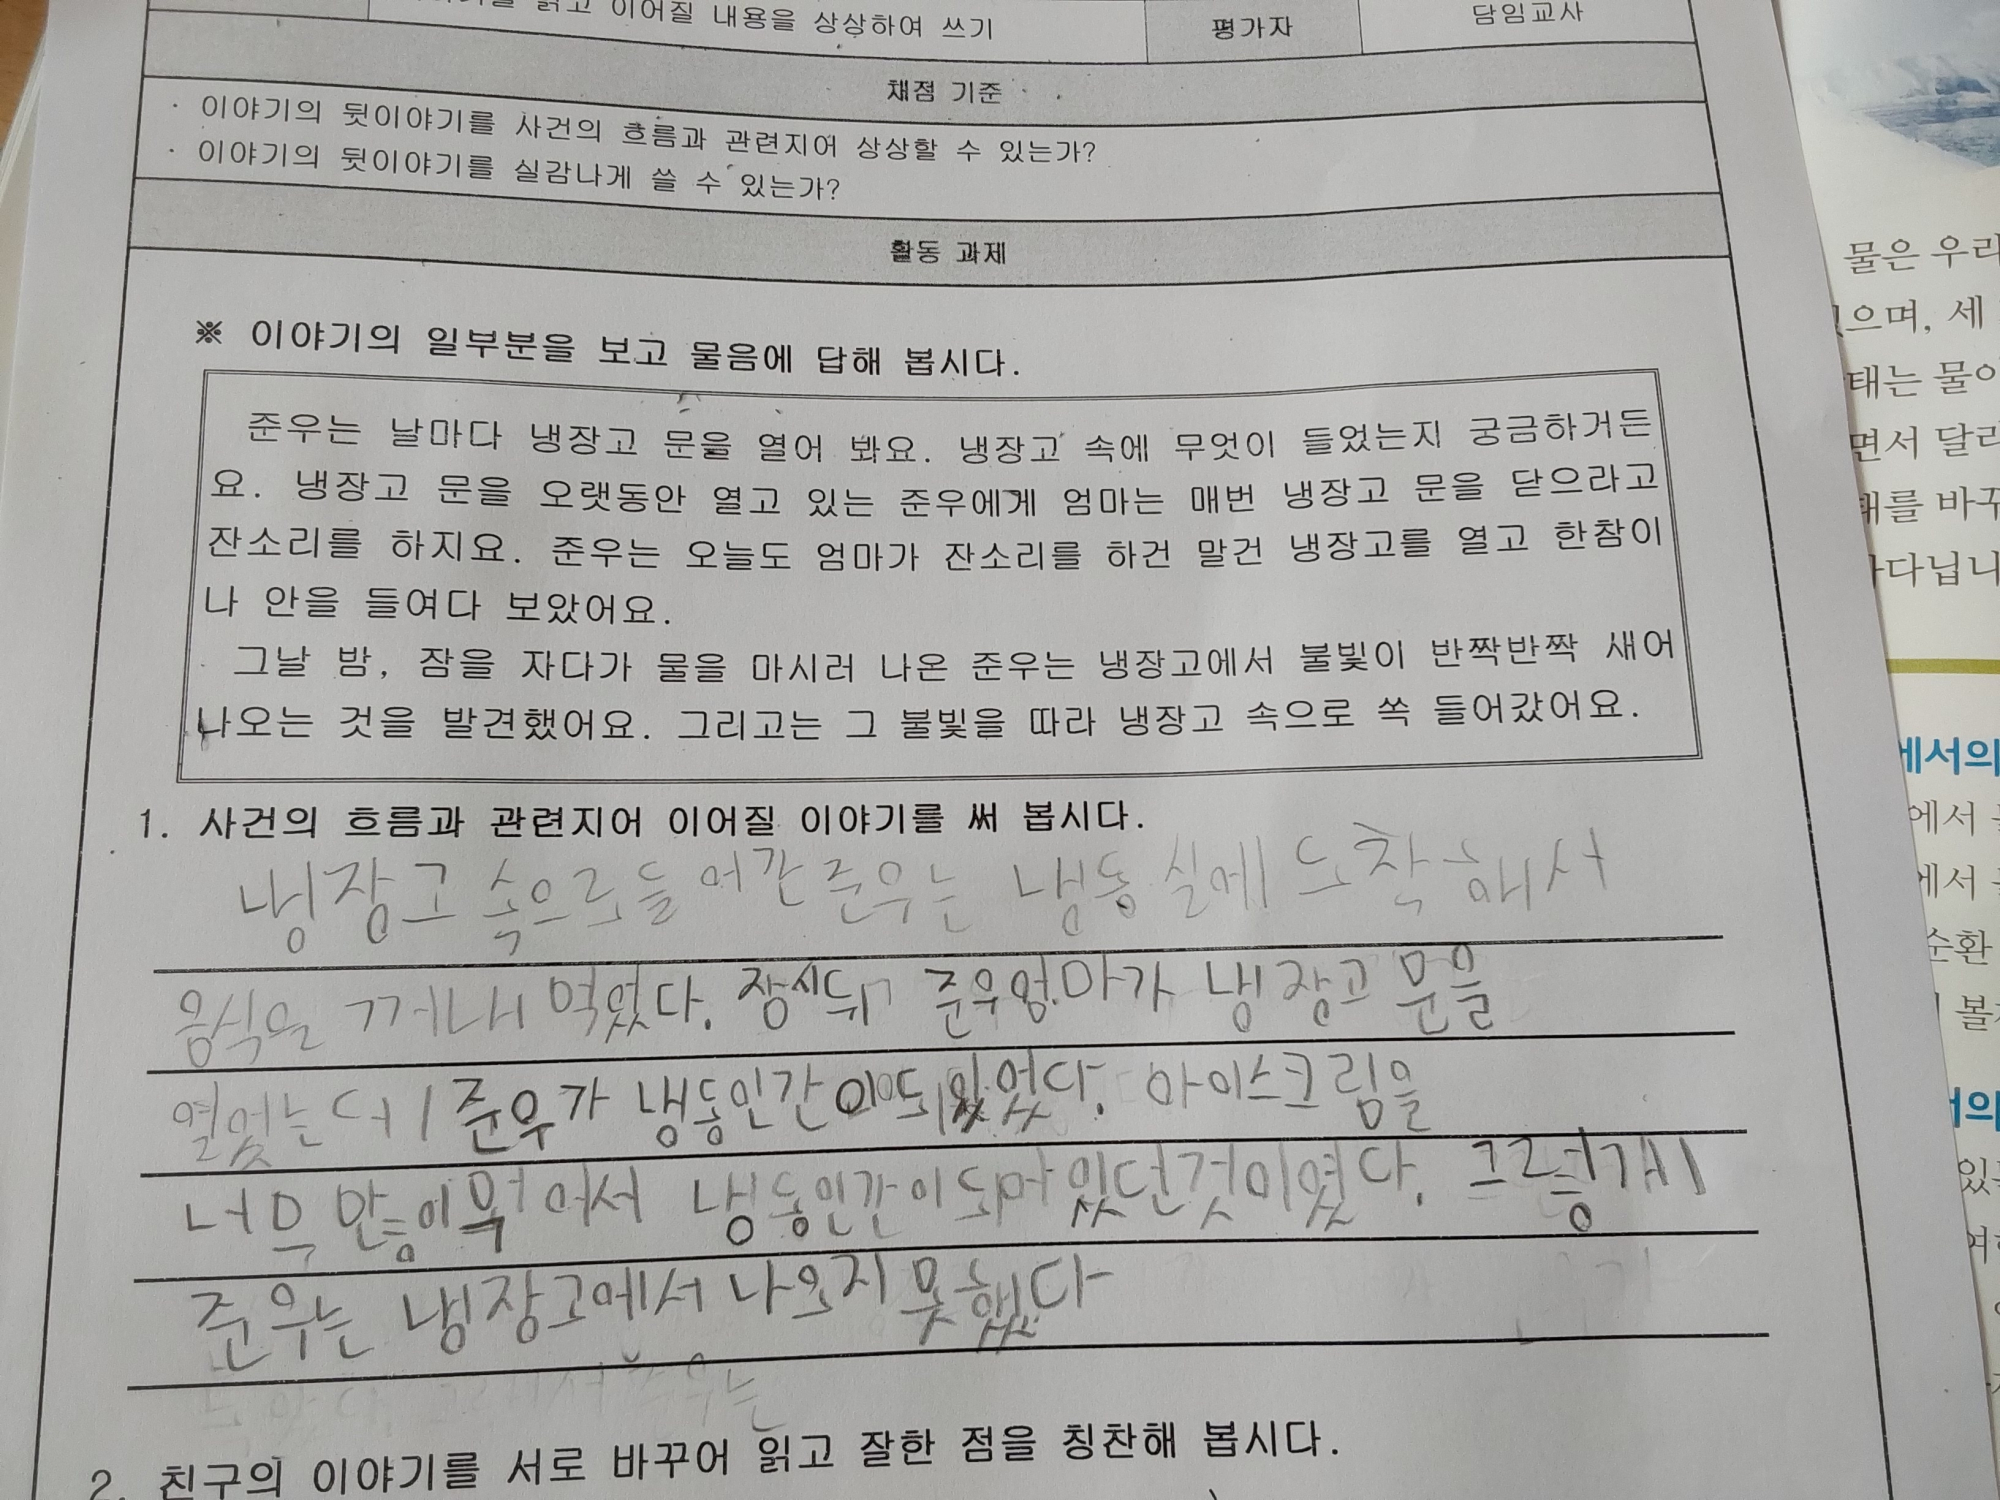 읽고 이어질 내용을 상상하여 쓰기
평가자
담임교사
채점 기준
· 이야기의 뒷이야기를 사건의 흐름과 관련지어 상상할 수 있는가?
· 이야기의 뒷이야기를 실감나게 쓸 수 있는가?
활동 과제
※ 이야기의 일부분을 보고 물음에 답해 봅시다.
준우는 날마다 냉장고 문을 열어 봐요. 냉장고 속에 무엇이 들었는지 궁금하거든
요. 냉장고 문을 오랫동안 열고 있는 준우에게 엄마는 매번 냉장고 문을 닫으라고
잔소리를 하지요. 준우는 오늘도 엄마가 잔소리를 하건 말건 냉장고를 열고 한참이
나 안을 들여다 보았어요.
그날 밤, 잠을 자다가 물을 마시러 나온 준우는 냉장고에서 불빛이 반짝반짝 새어
나오는 것을 발견했어요. 그리고는 그 불빛을 따라 냉장고 속으로 쏙 들어갔어요.
1. 사건의 흐름과 관련지어 이어질 이야기를 써 봅시다.
냉장고 속으로들어간준우는 냉동실에 도착해서
음식을 꺼내 먹었다. 잠시뒤 준우엄마가 냉장고 문을
열었는더니 준우가 냉동인간이되있었다. 아이스크림을
너무 많이먹어서 냉동인간이되어있던것이였다. 그렇게
준우는 냉장고에서나오지못했다
2. 친구의 이야기를 서로 바꾸어 읽고 잘한 점을 칭찬해 봅시다.
물은 우리
으며, 세
태는 물이
면서 달라
태를 바꾸
다닙니
에서의
에서
에서
순환
볼
의
있